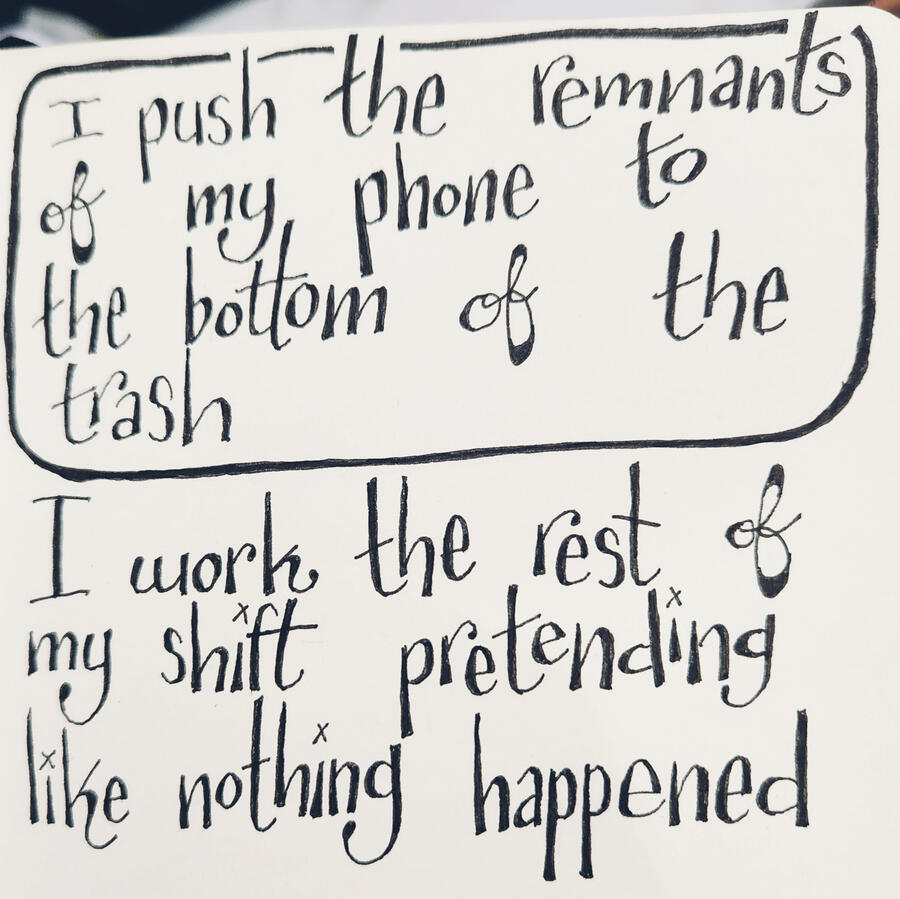 I push the remnants
of my phone to
the bottom of the
trash
I work the rest of
my shift pretending
like nothing happened